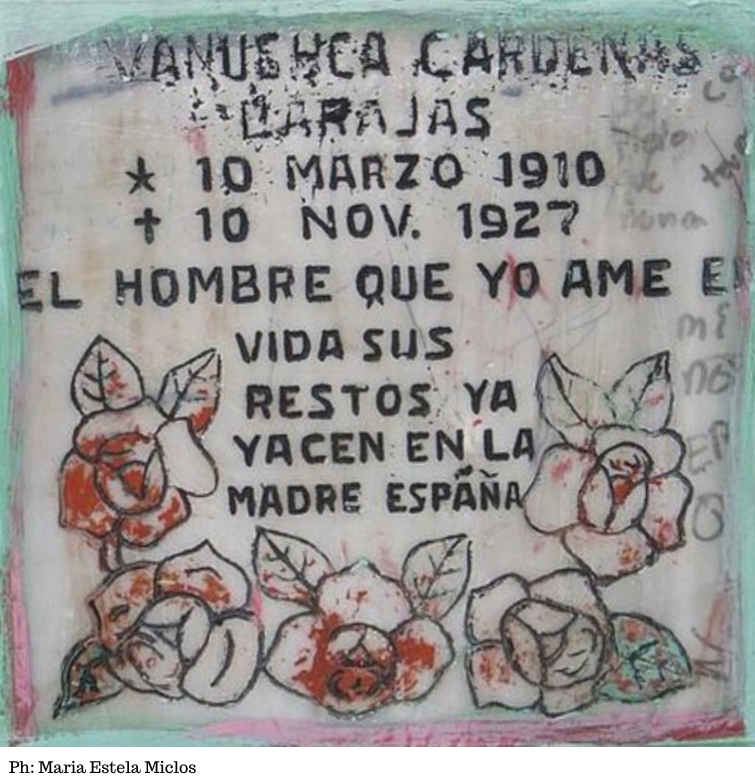 VANUSHCA CARDENAS
BARAJAS
★ 10 MARZO 1910
✝ 10 NOV. 1927
EL HOMBRE QUE YO AME EN
VIDA SUS
RESTOS YA
YACEN EN LA
MADRE ESPAÑA
Ph: Maria Estela Miclos